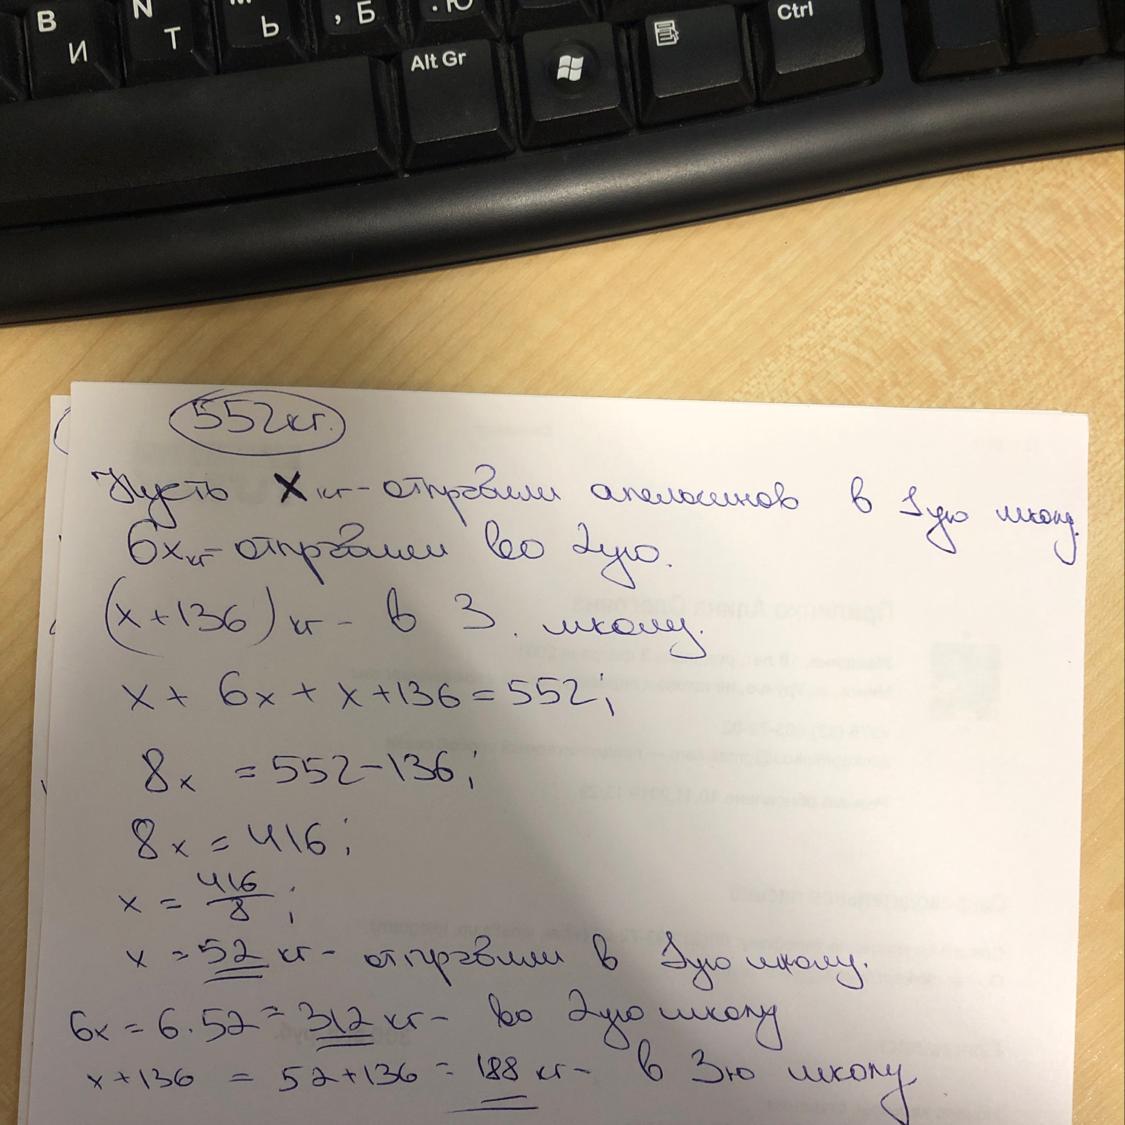 B И
N Т
Ь
, Б
. Ю
Alt Gr
Ctrl
552 кг.
Пусть X кг - отправили апельсинов в 1ую школу.
6x кг - отправили во 2ую.
(x+136) кг - в 3. школу.
x + 6x + x + 136 = 552;
8x = 552 - 136;
8x = 416;
x = 416/8;
x = 52 кг - отправили в 1ую школу.
6x = 6 · 52 = 312 кг - во 2ую школу
x + 136 = 52 + 136 = 188 кг - в 3ю школу